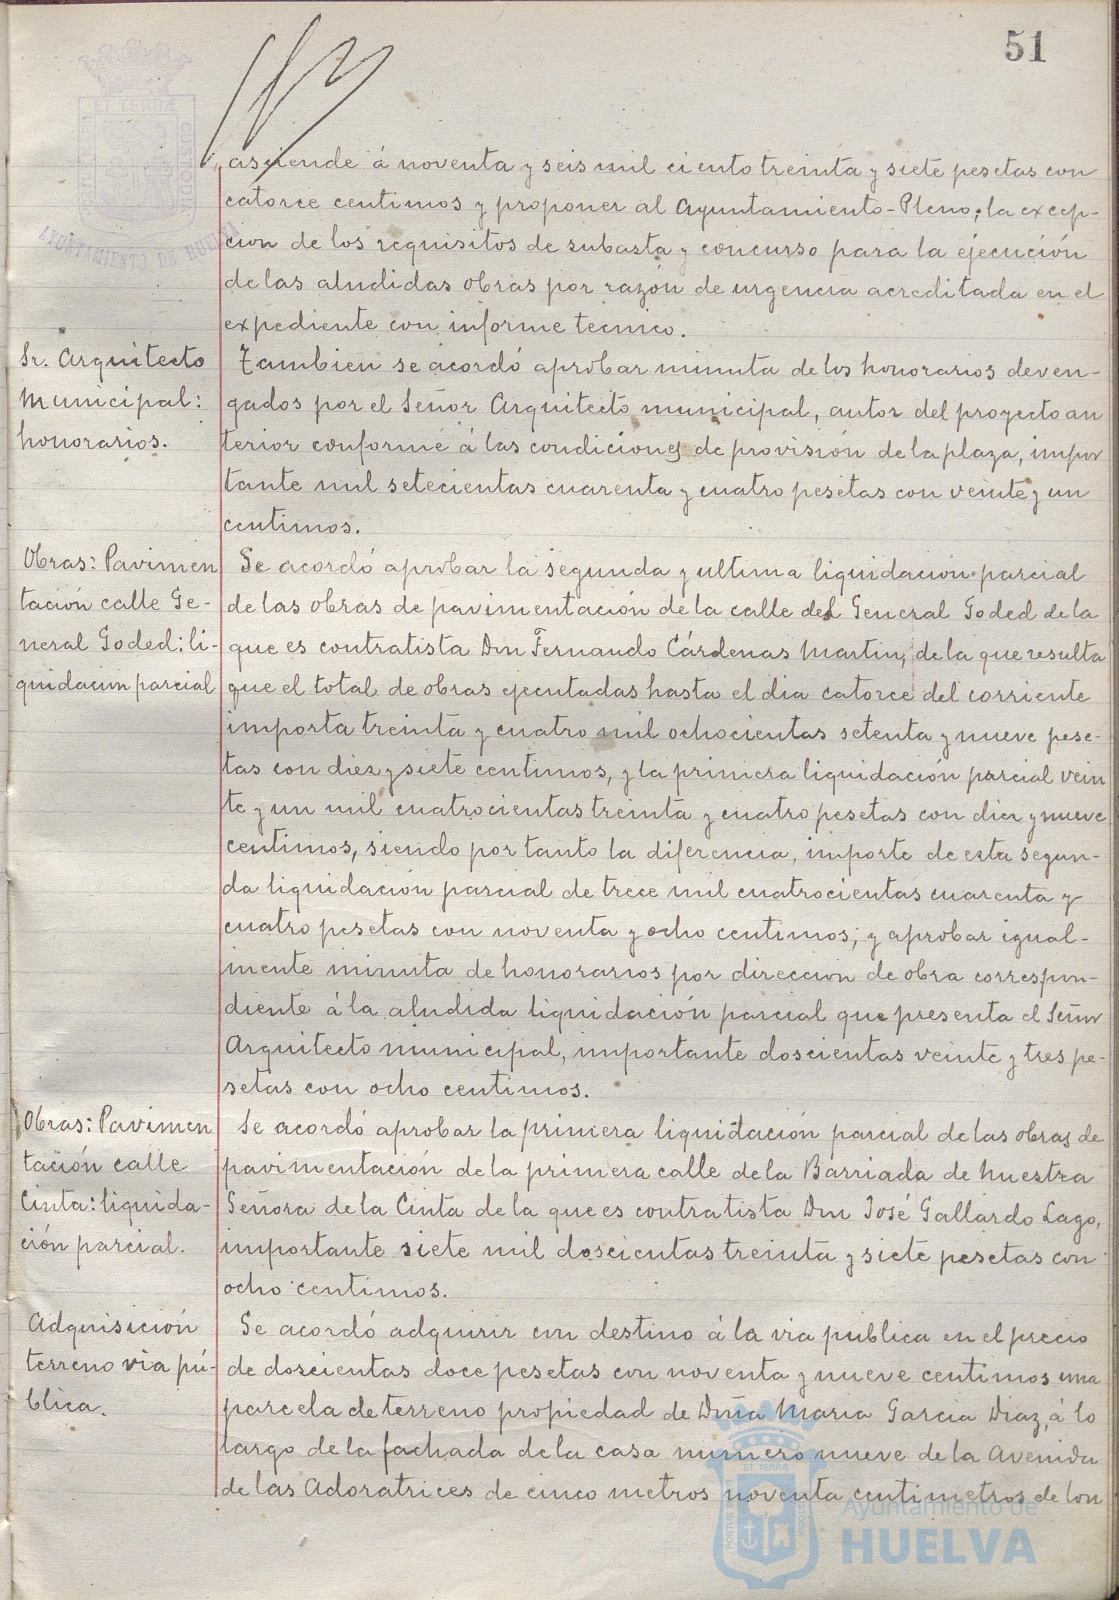 51
asciende á noventa y seis mil ciento treinta y siete pesetas con
catorce centimos y proponer al Ayuntamiento-Pleno, la excep-
cion de los requisitos de subasta y concurso para la ejecución
de las aludidas obras por razón de urgencia acreditada en el
expediente con informe tecnico.
Sr. Arquitecto
Municipal:
honorarios.
Tambien se acordó aprobar minuta de los honorarios deven-
gados por el Señor Arquitecto municipal, autor del proyecto an
terior conforme á las condiciones de provisión de la plaza, impor
tante mil setecientas cuarenta y cuatro pesetas con veinte y un
centimos.
Obras: Pavimen
tación calle Ge-
neral Goded: li-
quidacion parcial
Se acordó aprobar la segunda y ultima liquidacion parcial
de las obras de pavimentación de la calle del General Goded de la
que es contratista Don Fernando Cárdenas Martin, de la que resulta
que el total de obras ejecutadas hasta el dia catorce del corriente
importa treinta y cuatro mil ochocientas setenta y nueve pese-
tas con diez y siete centimos, y la primera liquidación parcial vein
te y un mil cuatrocientas treinta y cuatro pesetas con diez y nueve
centimos, siendo por tanto la diferencia, importe de esta segun-
da liquidación parcial de trece mil cuatrocientas cuarenta y
cuatro pesetas con noventa y ocho centimos; y aprobar igual-
mente minuta de honorarios por direccion de obra correspon-
diente á la aludida liquidación parcial que presenta el Señor
Arquitecto municipal, importante doscientas veinte y tres pe-
setas con ocho centimos.
Obras: Pavimen
tación calle
Cinta: liquida-
ción parcial.
Se acordó aprobar la primera liquidación parcial de las obras de
pavimentación de la primera calle de la Barriada de Nuestra
Señora de la Cinta de la que es contratista Don José Gallardo Lago,
importante siete mil doscientas treinta y siete pesetas con
ocho centimos.
Adquisición
terreno via pú-
blica.
Se acordó adquirir con destino á la via publica en el precio
de doscientas doce pesetas con noventa y nueve centimos una
parcela de terreno propiedad de Dña Maria Garcia Diaz, á lo
largo de la fachada de la casa numero nueve de la Avenida
de las Adoratrices de cinco metros noventa centimetros de lon
AYUNTAMIENTO DE HUELVA
Ayuntamiento de
HUELVA